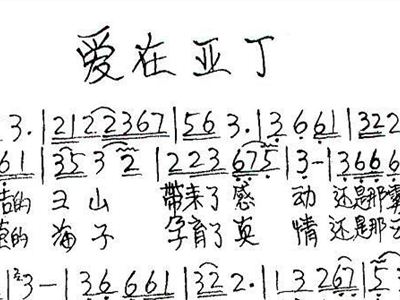 爱在亚丁
3. | 2122367 | 563. | 3661 | 322
61 | 353 2 | 223675 | 3- | 3666
的 山 带来了感 动 还是那
的 海 子 孕育了真 情 还是那
3- | 36661 | 322. | 13267 | 53